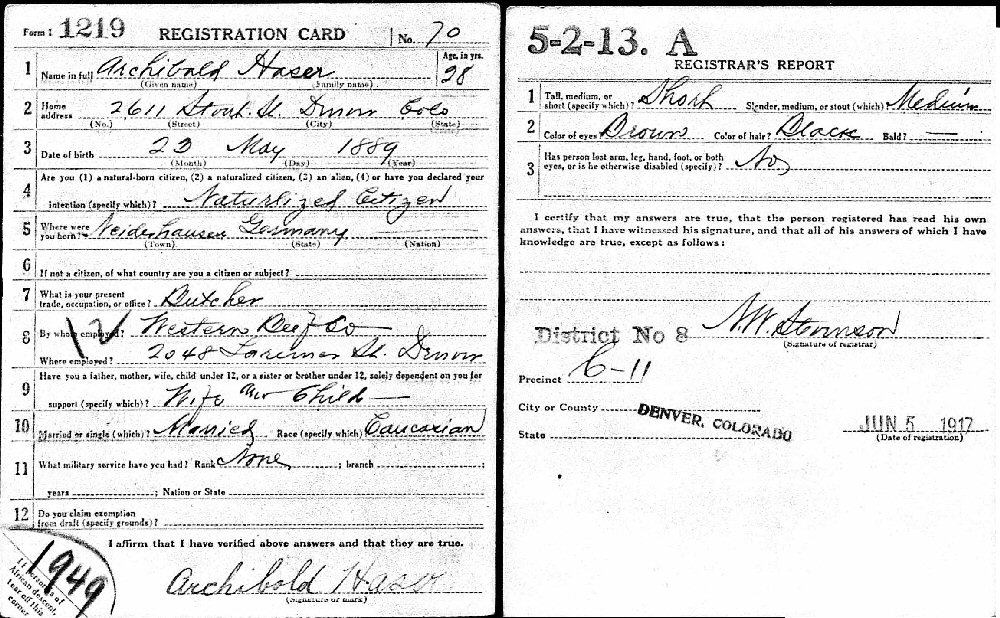 Form 1 1219 REGISTRATION CARD No. 70
1 Name in full Archibald Haser Age, in yrs. 28
(Given name) (Family name)
2 Home address 2611 Stout St. Denver Colo
(No.) (Street) (City) (State)
3 Date of birth 23 May 1889
(Month) (Day) (Year)
4 Are you (1) a natural-born citizen, (2) a naturalized citizen, (3) an alien, (4) or have you declared your
intention (specify which)? Naturlized Citizen
5 Where were you born? Neidenhausen Germany
(Town) (State) (Nation)
6 If not a citizen, of what country are you a citizen or subject?
7 What is your present trade, occupation, or office? Butcher
8 By whom employed? Western Beef Co
12
Where employed? 2048 Larimer St. Denver
9 Have you a father, mother, wife, child under 12, or a sister or brother under 12, solely dependent on you for
support (specify which)? Wife and Child
10 Married or single (which)? Married Race (specify which) Caucasian
11 What military service have you had? Rank None ; branch ;
years ; Nation or State
12 Do you claim exemption from draft (specify grounds)?
I affirm that I have verified above answers and that they are true.
Archibold Haser
(Signature or mark)
If person is of
African descent,
tear off this
corner
1949
5-2-13. A
REGISTRAR'S REPORT
1 Tall, medium, or short (specify which)? Short Slender, medium, or stout (which)? Medium
2 Color of eyes? Brown Color of hair? Black Bald? —
3 Has person lost arm, leg, hand, foot, or both eyes, or is he otherwise disabled (specify)? No
I certify that my answers are true, that the person registered has read his own
answers, that I have witnessed his signature, and that all of his answers of which I have
knowledge are true, except as follows:
District No 8 N.W. Stevenson
(Signature of registrar)
Precinct C-11
City or County DENVER, COLORADO
State JUN 5 1917
(Date of registration)